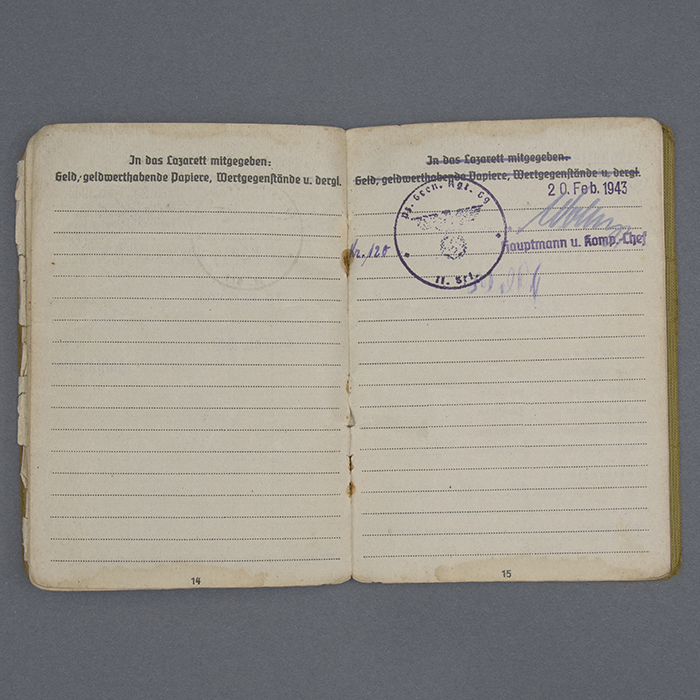 In das Lazarett mitgegeben:
Geld, geldwerthabende Papiere, Wertgegenstände u. dergl.
14
In das Lazarett mitgegeben.
Geld, geldwerthabende Papiere, Wertgegenstände u. dergl.
20. Feb. 1943
Pz. Gren. Rgt. 69
Nr. 120
Hauptmann u. Komp.-Chef
II. Btl.
15